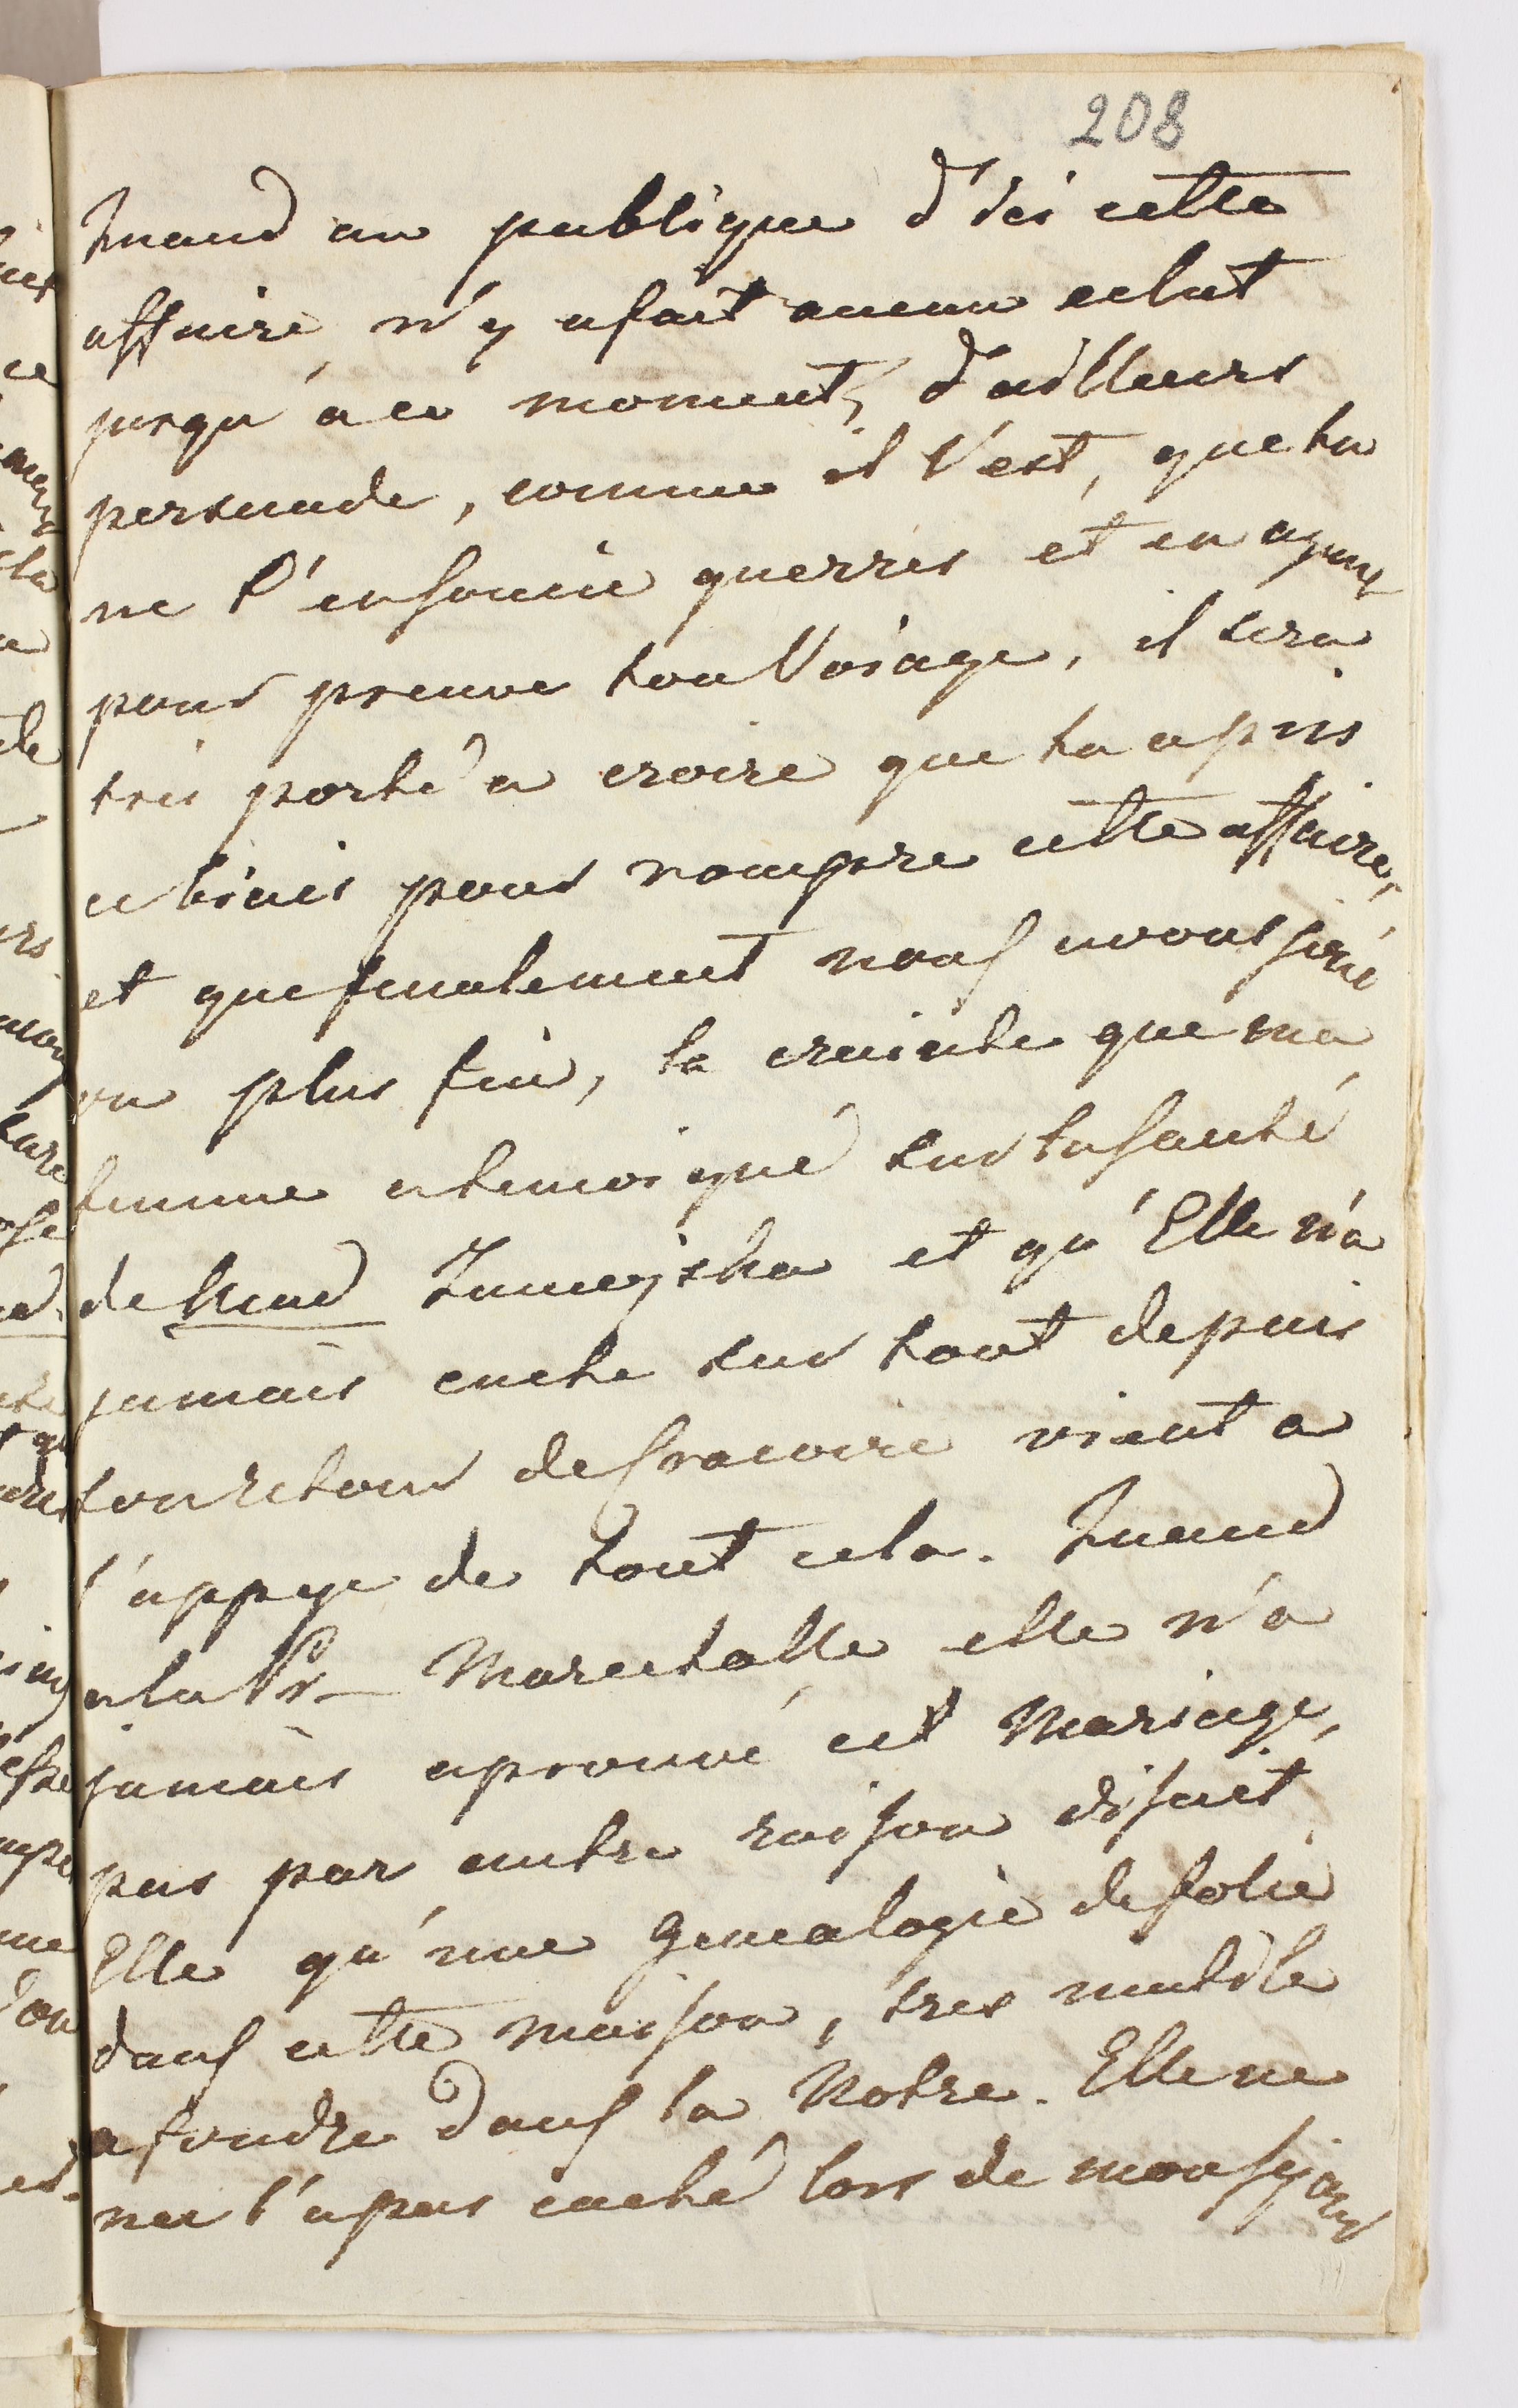 208
Quand au publique d'ici cette
affaire n'y a fait aucun eclat
jusqu'a ce moment, d'ailleurs
persuade, comme il l'est, que tu
ne t'en soucie guerres et en ayant
pour preuve ton Voiage, il sera
tres porté a croire que tu a pris
ce biais pour rompre cette affaire,
et que finalement nous avons joué
au plus fin, la crainte que ma
femme a temoigné sur ta santé
de Zameyska et qu'Elle n'a
jamais caché sur tout depuis
ton retour de vient a
l'appuye de tout cela. Quand
a la Pr Marechalle elle n'a
jamais aprouvé cet Mariage,
pas par autre raison disait
Elle qu'une Genealogie de folie
dans cette maison, tres inutile
a fondre dans la Notre. Elle ne
me l'a pas caché lors de mon sejour